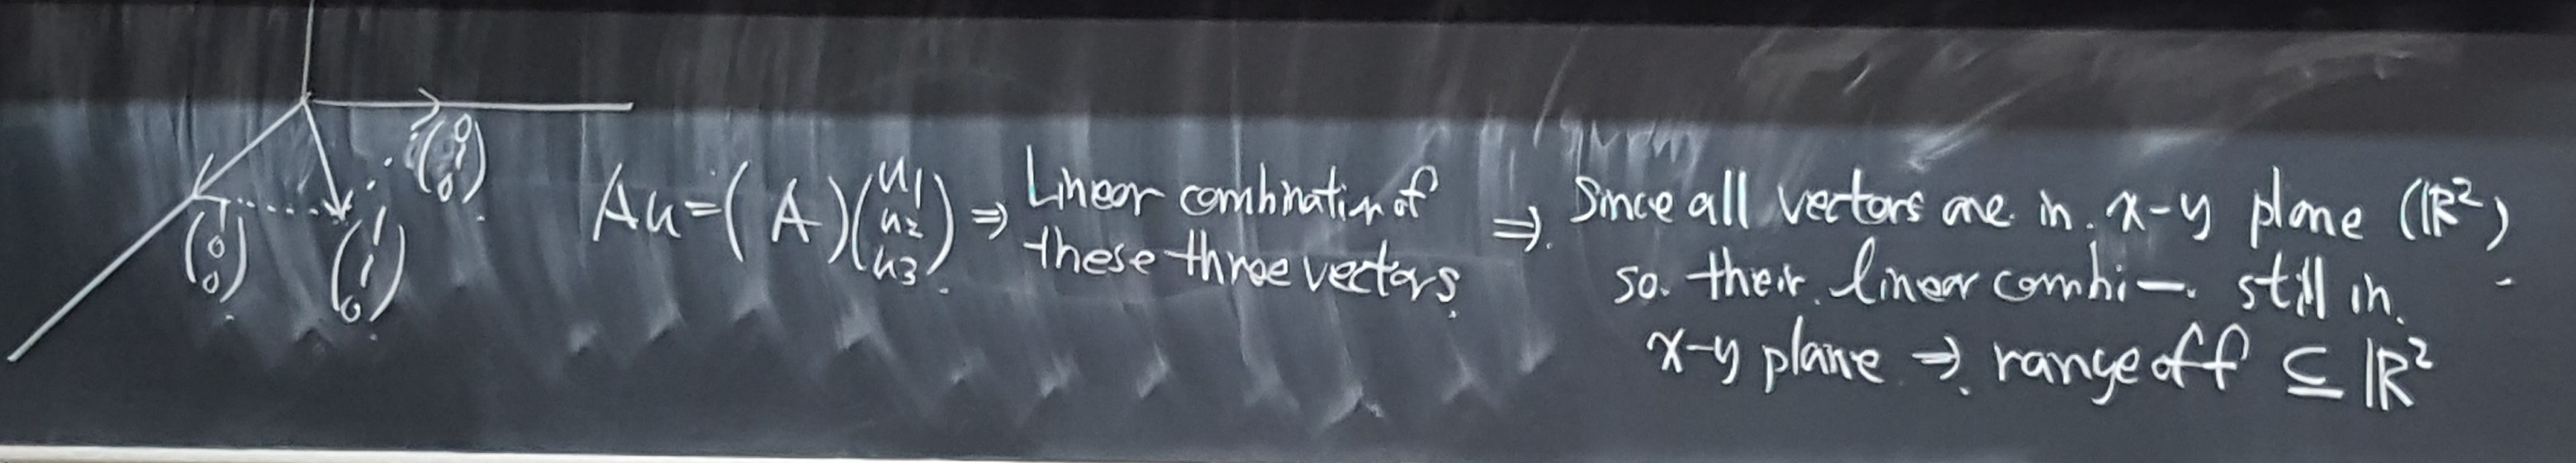 (0 1 0)
(1 0 0)
(1 1 0)
Au=(A)(u1 u2 u3) ⇒ Linear combination of these three vectors.
⇒ Since all vectors are in x-y plane (ℝ²)
so their linear combi—. still in
x-y plane ⇒ range of f ⊆ ℝ²